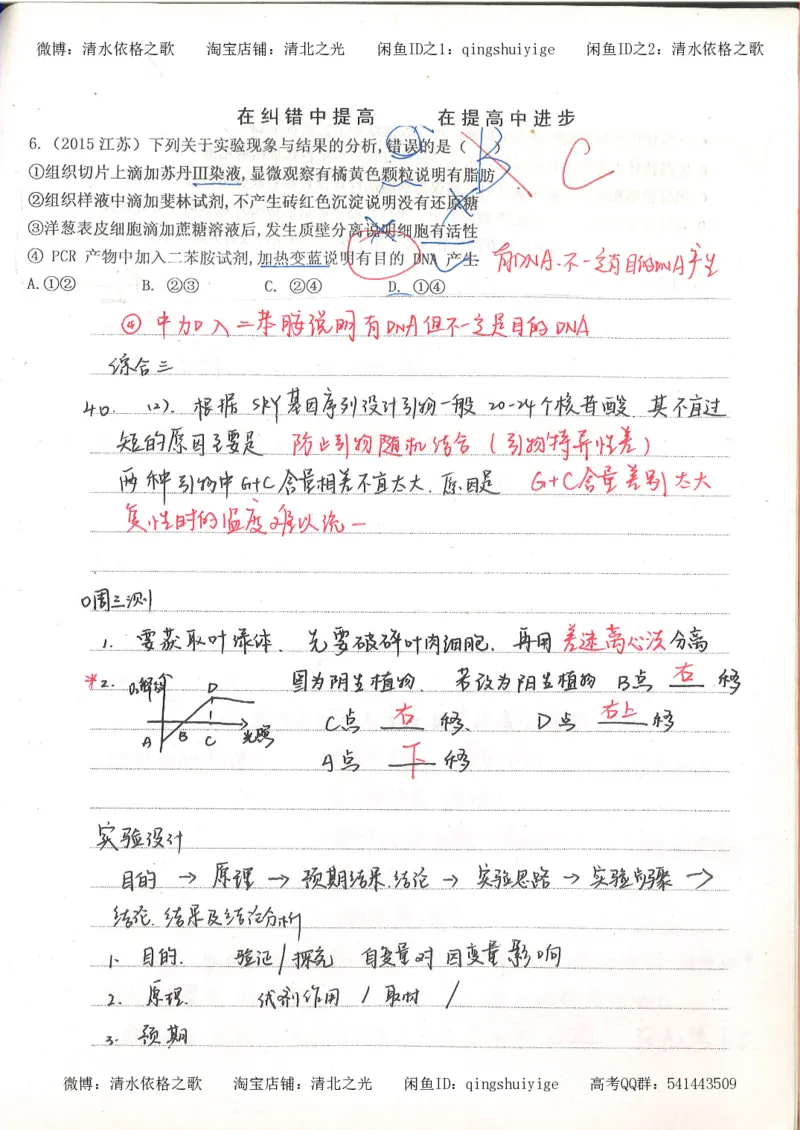 微博：清水依格之歌 淘宝店铺：清北之光 闲鱼ID之1：qingshuiyige 闲鱼ID之2：清水依格之歌
在纠错中提高 在提高中进步
6.（2015江苏）下列关于实验现象与结果的分析,错误的是（ B ） C
①组织切片上滴加苏丹Ⅲ染液,显微观察有橘黄色颗粒说明有脂肪
②组织样液中滴加斐林试剂,不产生砖红色沉淀说明没有还原糖
③洋葱表皮细胞滴加蔗糖溶液后,发生质壁分离说明细胞有活性
④ PCR 产物中加入二苯胺试剂,加热变蓝说明有目的 DNA 产生 有DNA.不一定有目的DNA产生
A.①② B. ②③ C. ②④ D. ①④
④ 中加入二苯胺说明有DNA但不一定是目的DNA
综合三
40. (2). 根据 SRY基因序列设计引物一般 20-24个核苷酸. 其不宜过
短的原因主要是 防止引物随机结合（引物特异性差）
两种引物中G+C含量相差不宜太大.原因是 G+C含量差别太大
复性时的温度难以统一
周三测
1. 要获取叶绿体. 先要破碎叶肉细胞. 再用差速离心法分离
*2. O₂释放 D 图为阴生植物. 若改为阳生植物 B点 右 移
A B C 光照 C点 右 移. D点 右上 移
A点 下 移
实验设计
目的 → 原理 → 预期结果.结论 → 实验思路 → 实验步骤 →
结论.结果及结论分析
1. 目的. 验证/探究 自变量对因变量影响
2. 原理. 试剂作用 / 取材 /
3. 预期
微博：清水依格之歌 淘宝店铺：清北之光 闲鱼ID：qingshuiyige 高考QQ群：541443509